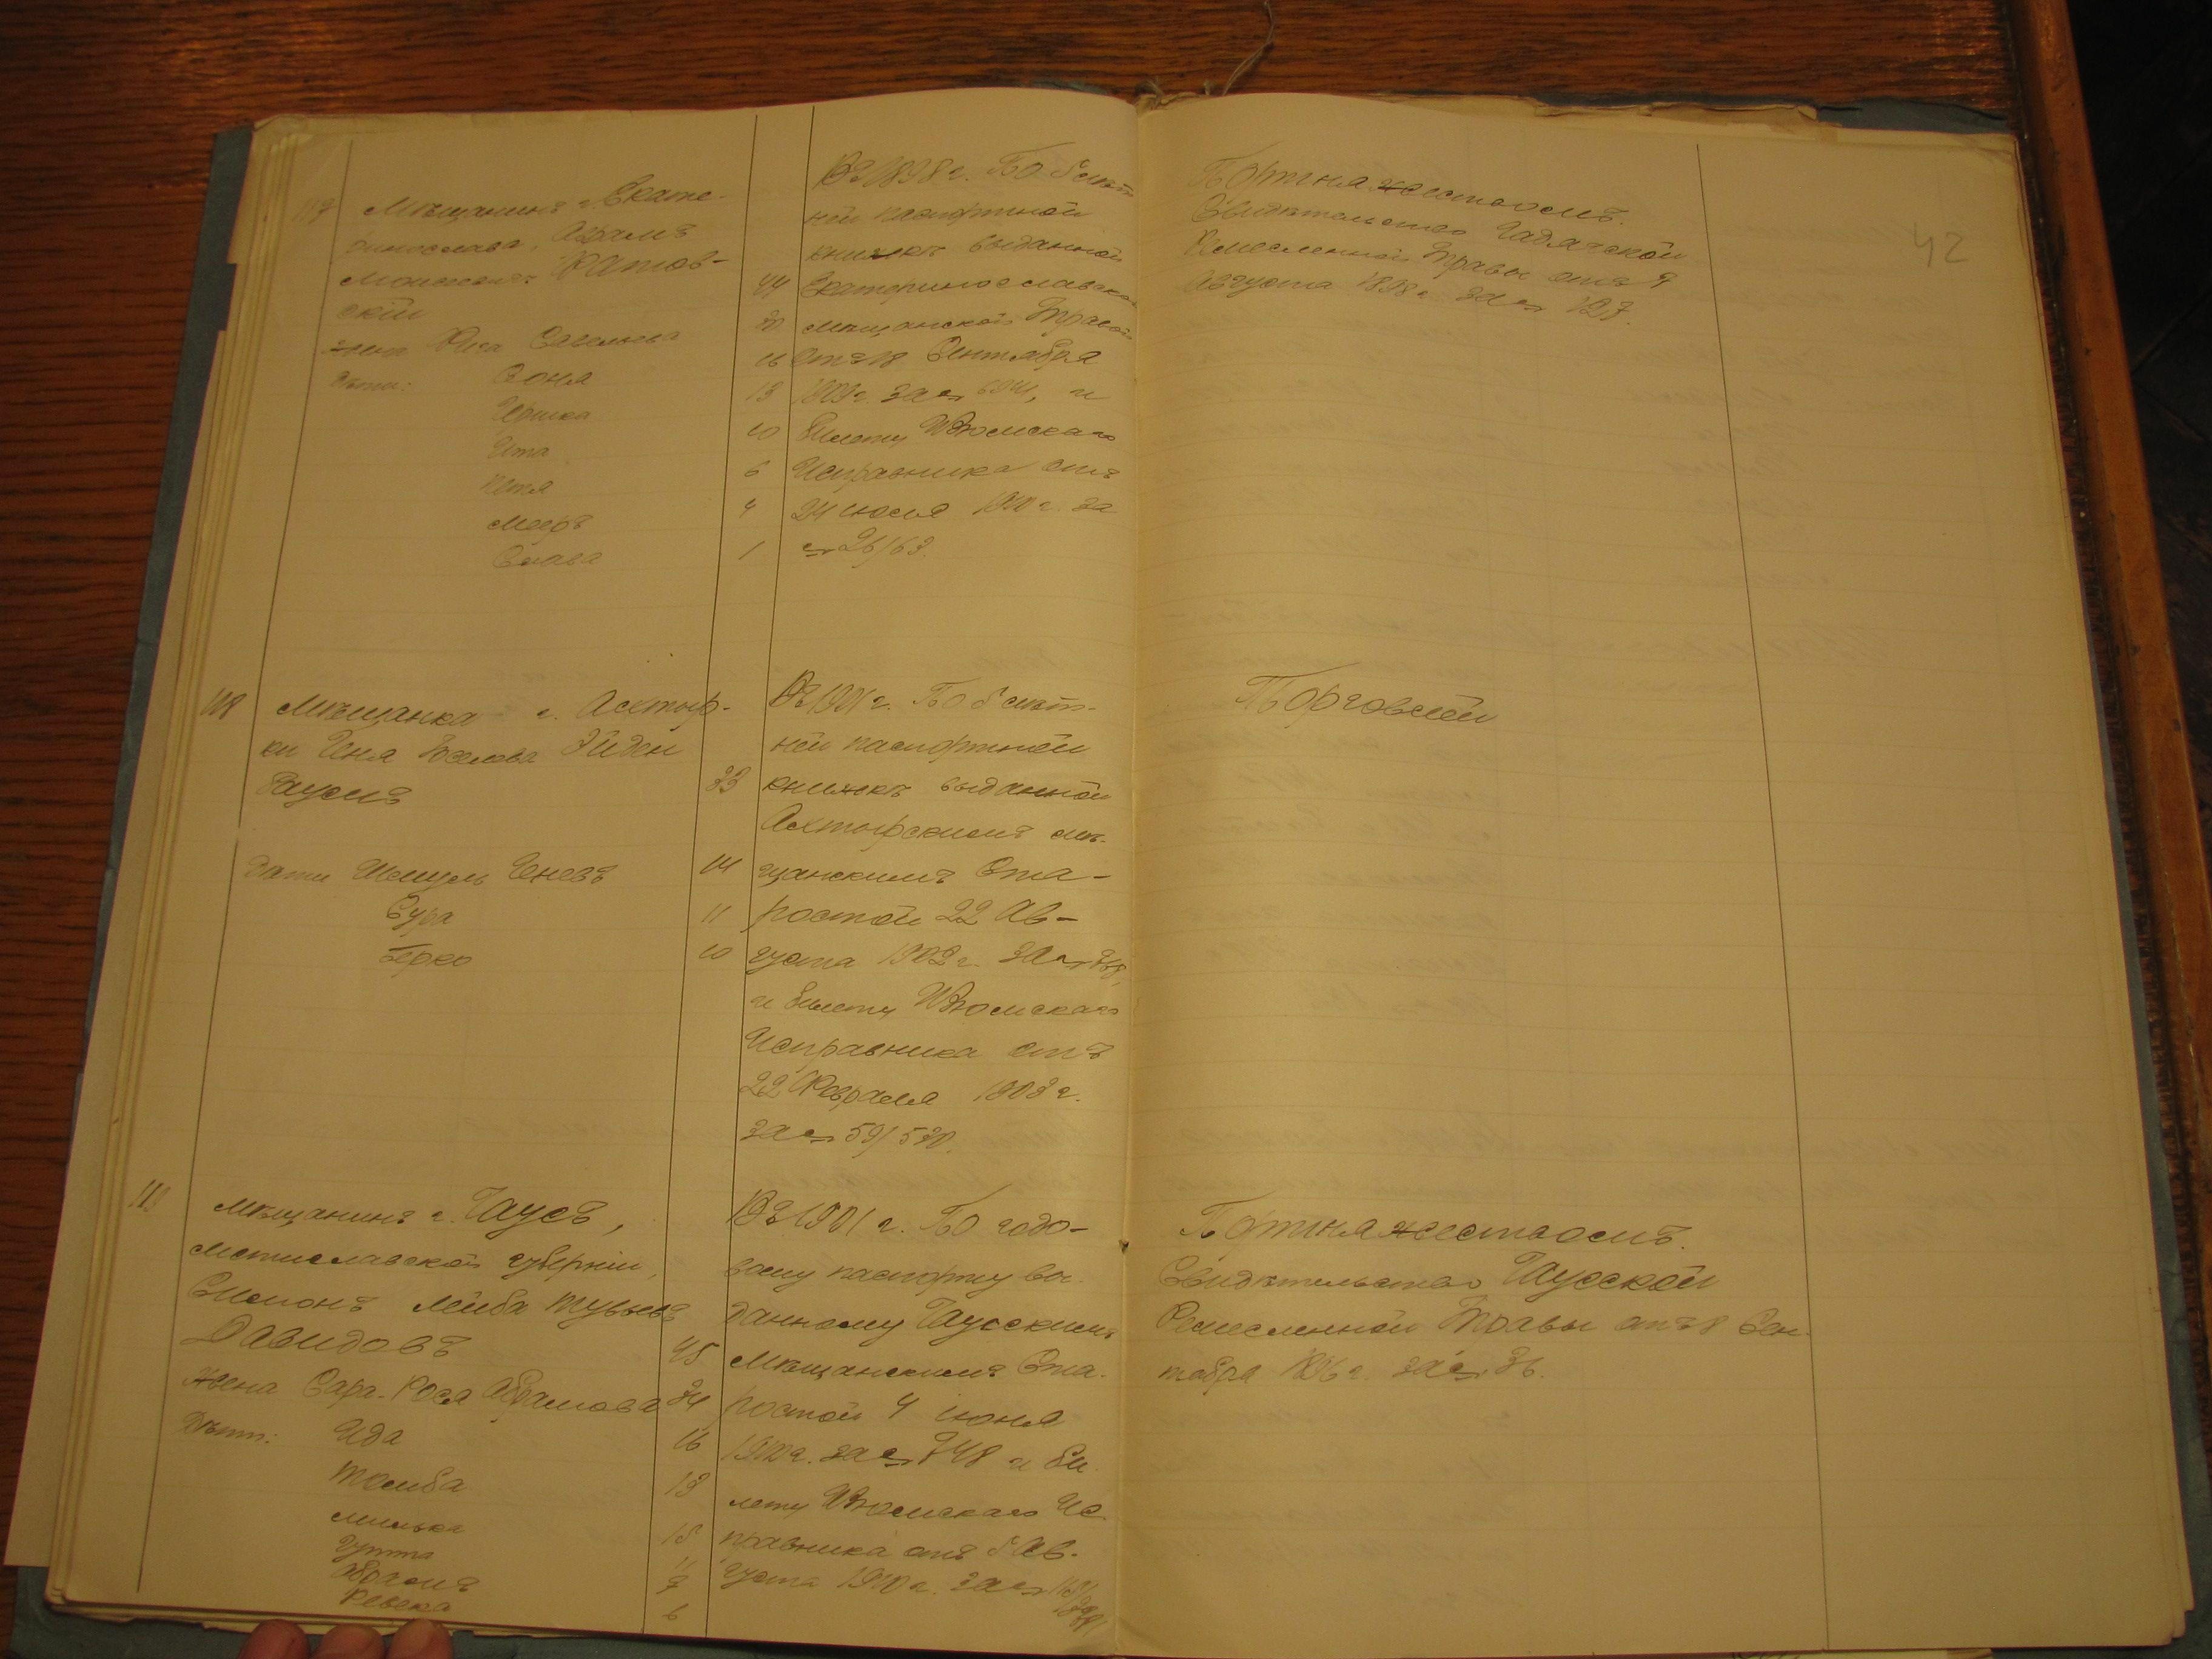 117 Мѣщанинъ г. Екате-
ринослава, Абрамъ
Мошковъ
скій 44
жена Савельева
дѣти: Соня 16
13
Ита 10
6
Мееръ 4
Слава 1
Въ 1898 г. По 5 лѣт-
ней паспортной
книжкѣ выданной
Екатеринославской
мѣщанской Управой
отъ 18 Сентября
1909 г. за №, и
билету Изюмскаго
Исправника отъ
24 1910 г. за
№ 26/63.
Портняжествомъ.
Свидѣтельство Гадячской
Ремесленной Управы отъ 9
Августа 1898 г. за № 127.
42
118 Мѣщанка г. Ахтыр-
ки Геня Іоселева Эйден
баумъ 33
дѣти Шмуль Геневъ 14
Сура 11
Берко 10
Въ 1901 г. По 5 лѣт-
ней паспортной
книжкѣ выданной
Ахтырскимъ мѣ-
щанскимъ Ста-
ростой 22 Ав-
густа 1902 г. за №
и билету Изюмскаго
Исправника отъ
22 Февраля 1903 г.
за № 59/530.
Торговлей
119 Мѣщанинъ г. Чаусъ,
Мстиславской губерніи,
Симонъ Лейба Тувьевъ
Давидовъ 45
жена Сара-Рося Абрамова 34
Дѣти: Ида 16
13
Милька
Гутта 11
Абрамъ
Ревека 6
Въ 1901 г. По годо-
вому паспорту вы-
данному Чаусскимъ
Мѣщанскимъ Ста-
ростой 4 Іюня
1910 г. за № 748 и би
лету Изюмскаго Ис
правника отъ 5 Ав-
густа 1910 г. за №
Портняжествомъ.
Свидѣтельство Чаусской
Ремесленной Управы отъ 8 Сен-
тября 1896 г. за № 36.